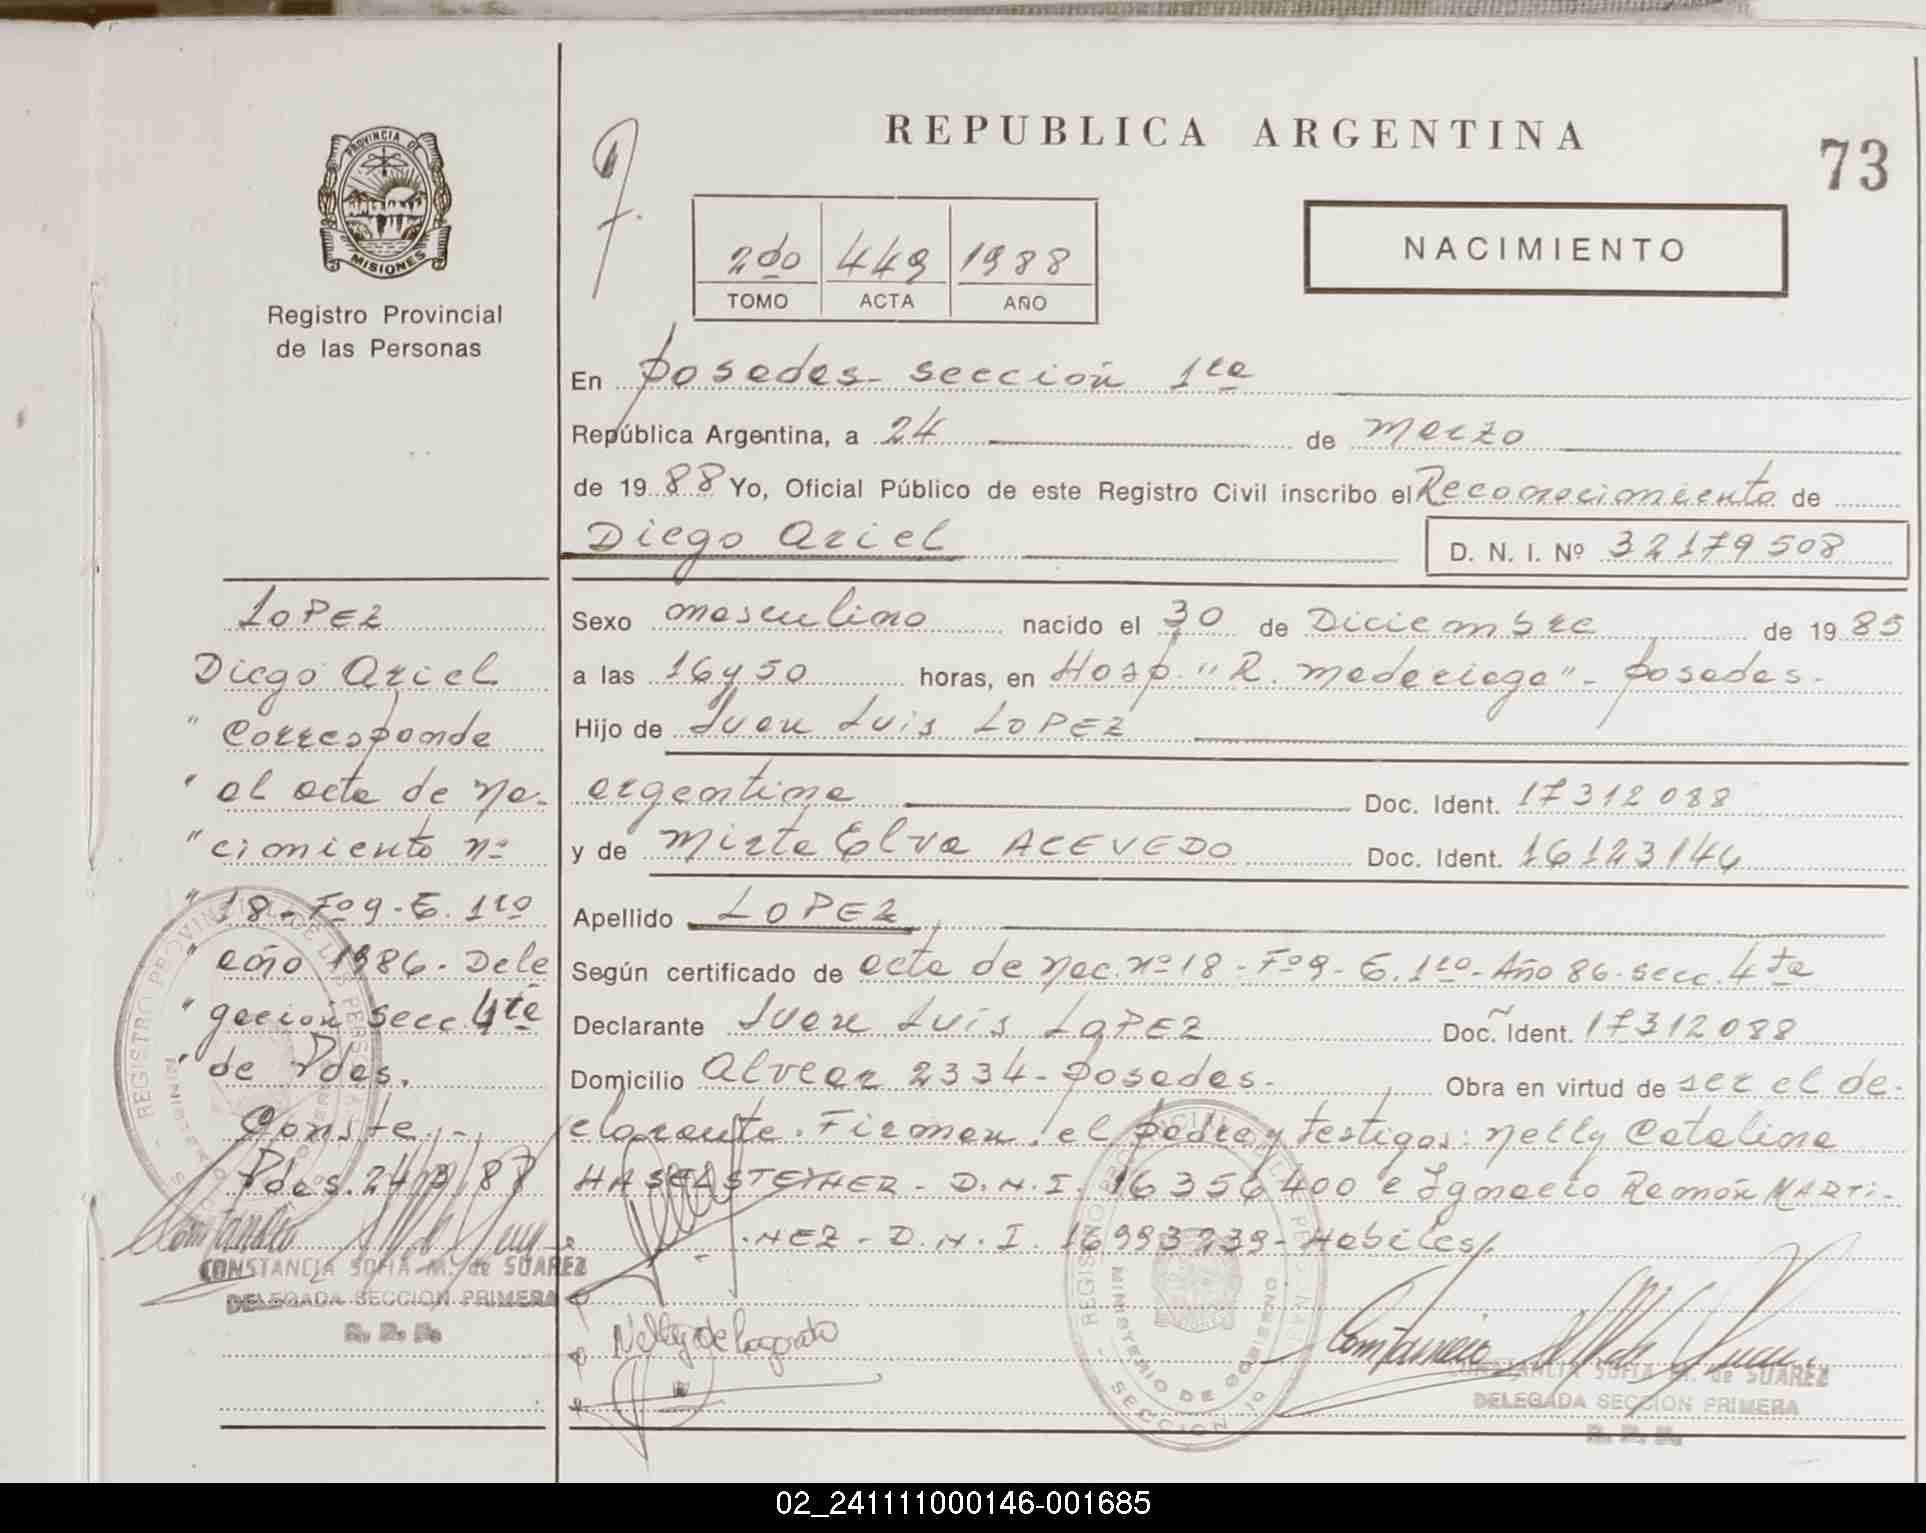 REPUBLICA ARGENTINA
73
PROVINCIA DE
MISIONES
Registro Provincial
de las Personas
2do 449 1988
TOMO ACTA AÑO
NACIMIENTO
En Posadas sección 1ra
República Argentina, a 24 de Marzo
de 1988 Yo, Oficial Público de este Registro Civil inscribo el Reconocimiento de
Diego Ariel
D. N. I. Nº 32179508
Sexo masculino nacido el 30 de Diciembre de 1985
a las 16 y 50 horas, en Hosp. "R. Madariaga" - Posadas.
Hijo de Juan Luis LOPEZ
argentina Doc. Ident. 17312088
y de Mirta Elva ACEVEDO Doc. Ident. 16123144
Apellido LOPEZ
Según certificado de acta de Nac. nº 18 - Fº 9 - T. 1ro - Año 86 - Secc. 4ta
Declarante Juan Luis LOPEZ Doc. Ident. 17312088
Domicilio Alvear 2334 - Posadas. Obra en virtud de ser el de-
clarante. Firman, el padre y testigos: Nelly Catalina
D.N.I. 16356400 e Ignacio Ramón MARTI-
NEZ - D.N.I. 16993239 - Habiles.
Nelly de
CONSTANCIA SOFIA M. de SUAREZ
DELEGADA SECCION PRIMERA
R. P. P.
LOPEZ
Diego Ariel
" Corresponde
" al acta de Na-
" cimiento nº
" 18 - Fº 9 - T. 1ro
" año 1986 - Dele
" gación Secc. 4ta
" de Pdas.
Conste.-
Pdas. 24/3/88
CONSTANCIA SOFIA M. de SUAREZ
DELEGADA SECCION PRIMERA
R. P. P.
REGISTRO PROVINCIAL DE LAS PERSONAS
MINISTERIO DE GOBIERNO
SECCION 1ª
02_241111000146-001685